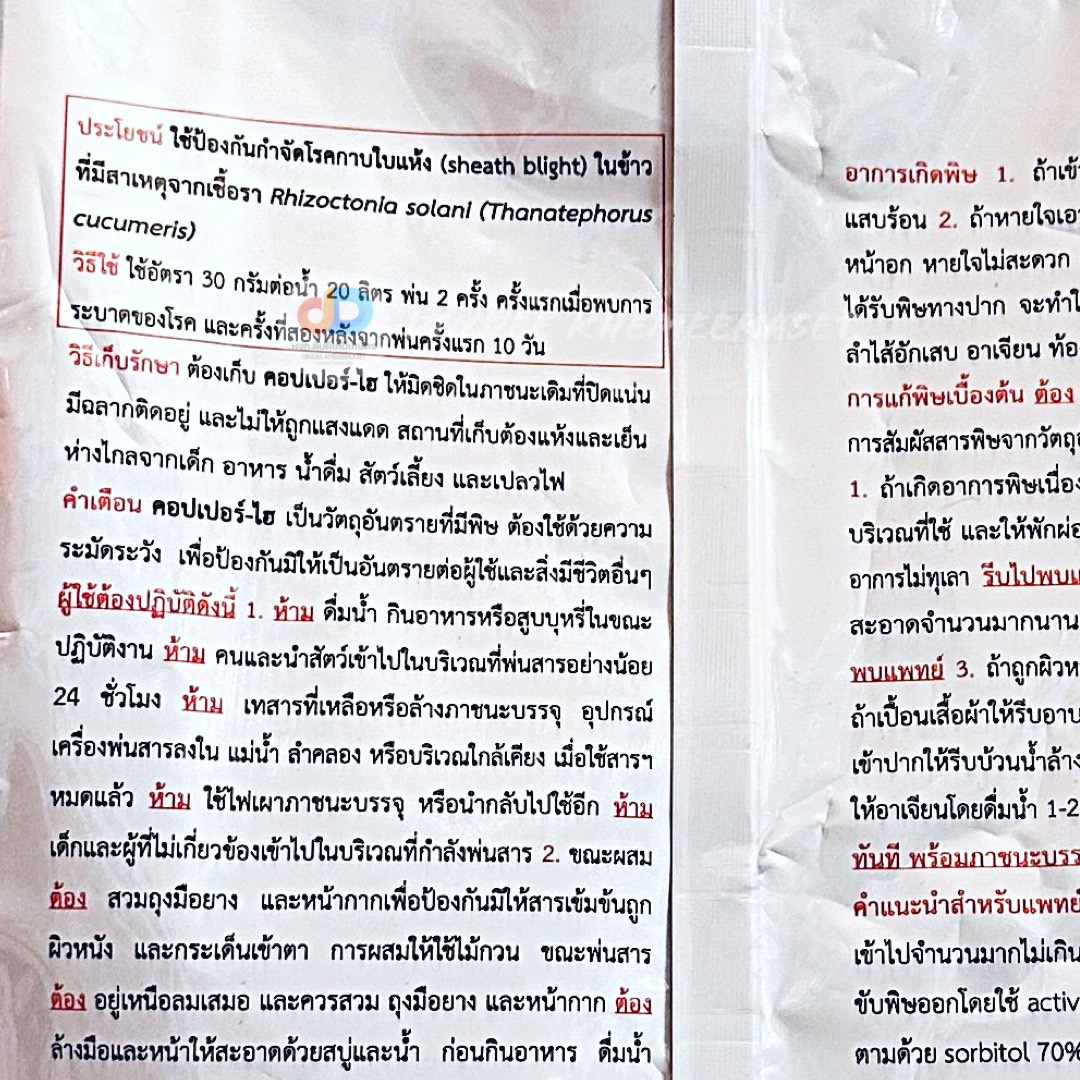 ประโยชน์ ใช้ป้องกันกำจัดโรคกาบใบแห้ง (sheath blight) ในข้าว
ที่มีสาเหตุจากเชื้อรา Rhizoctonia solani (Thanatephorus
cucumeris)
วิธีใช้ ใช้อัตรา 30 กรัมต่อน้ำ 20 ลิตร พ่น 2 ครั้ง ครั้งแรกเมื่อพบการ
ระบาดของโรค และครั้งที่สองหลังจากพ่นครั้งแรก 10 วัน
วิธีเก็บรักษา ต้องเก็บ คอปเปอร์-ไฮ ให้มิดชิดในภาชนะเดิมที่ปิดแน่น
มีฉลากติดอยู่ และไม่ให้ถูกแสงแดด สถานที่เก็บต้องแห้งและเย็น
ห่างไกลจากเด็ก อาหาร น้ำดื่ม สัตว์เลี้ยง และเปลวไฟ
คำเตือน คอปเปอร์-ไฮ เป็นวัตถุอันตรายที่มีพิษ ต้องใช้ด้วยความ
ระมัดระวัง เพื่อป้องกันมิให้เป็นอันตรายต่อผู้ใช้และสิ่งมีชีวิตอื่นๆ
ผู้ใช้ต้องปฏิบัติดังนี้ 1. ห้าม ดื่มน้ำ กินอาหารหรือสูบบุหรี่ในขณะ
ปฏิบัติงาน ห้าม คนและนำสัตว์เข้าไปในบริเวณที่พ่นสารอย่างน้อย
24 ชั่วโมง ห้าม เทสารที่เหลือหรือล้างภาชนะบรรจุ อุปกรณ์
เครื่องพ่นสารลงใน แม่น้ำ ลำคลอง หรือบริเวณใกล้เคียง เมื่อใช้สารฯ
หมดแล้ว ห้าม ใช้ไฟเผาภาชนะบรรจุ หรือนำกลับไปใช้อีก ห้าม
เด็กและผู้ที่ไม่เกี่ยวข้องเข้าไปในบริเวณที่กำลังพ่นสาร 2. ขณะผสม
ต้อง สวมถุงมือยาง และหน้ากากเพื่อป้องกันมิให้สารเข้มข้นถูก
ผิวหนัง และกระเด็นเข้าตา การผสมให้ใช้ไม้กวน ขณะพ่นสาร
ต้อง อยู่เหนือลมเสมอ และควรสวม ถุงมือยาง และหน้ากาก ต้อง
ล้างมือและหน้าให้สะอาดด้วยสบู่และน้ำ ก่อนกินอาหาร ดื่มน้ำ
อาการเกิดพิษ 1. ถ้าเข้า
แสบร้อน 2. ถ้าหายใจเอา
หน้าอก หายใจไม่สะดวก
ได้รับพิษทางปาก จะทำให้
ลำไส้อักเสบ อาเจียน ท้อง
การแก้พิษเบื้องต้น ต้อง
การสัมผัสสารพิษจากวัตถุอ
1. ถ้าเกิดอาการพิษเนื่อง
บริเวณที่ใช้ และให้พักผ่อ
อาการไม่ทุเลา รีบไปพบแ
สะอาดจำนวนมากนาน
พบแพทย์ 3. ถ้าถูกผิวห
ถ้าเปื้อนเสื้อผ้าให้รีบอาบ
เข้าปากให้รีบบ้วนน้ำล้าง
ให้อาเจียนโดยดื่มน้ำ 1-2
ทันที พร้อมภาชนะบรร
คำแนะนำสำหรับแพทย์
เข้าไปจำนวนมากไม่เกิน
ขับพิษออกโดยใช้ activ
ตามด้วย sorbitol 70%